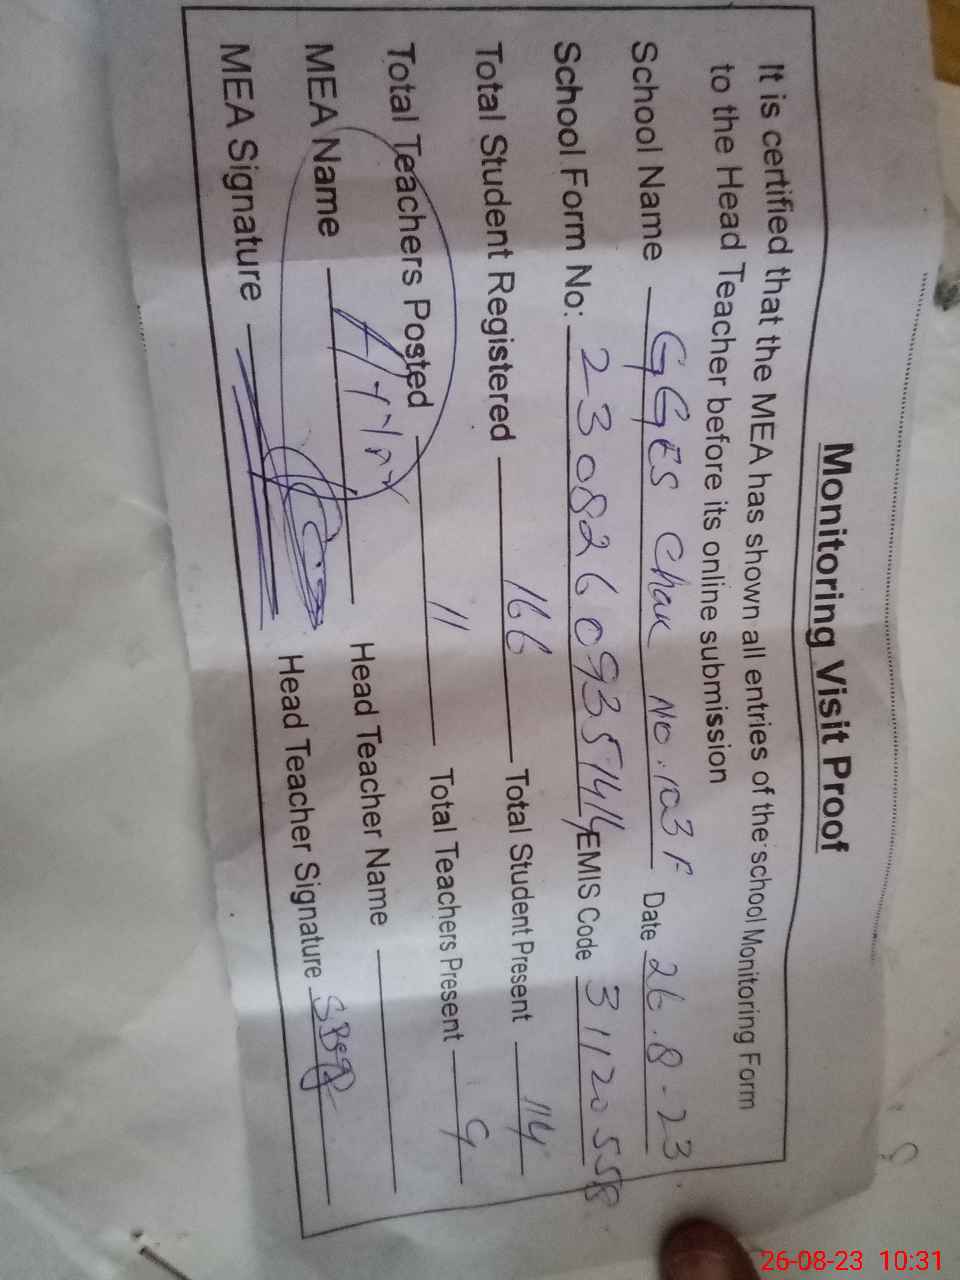 Monitoring Visit Proof
It is certified that the MEA has shown all entries of the school Monitoring Form
to the Head Teacher before its online submission
School Name GGES Chak No. 103 F Date 26.8.23
School Form No: 23082609351414 EMIS Code 31120558
Total Student Registered 166 Total Student Present 114
Total Teachers Posted 11 Total Teachers Present 9
MEA Name Head Teacher Name
MEA Signature Head Teacher Signature
26-08-23 10:31